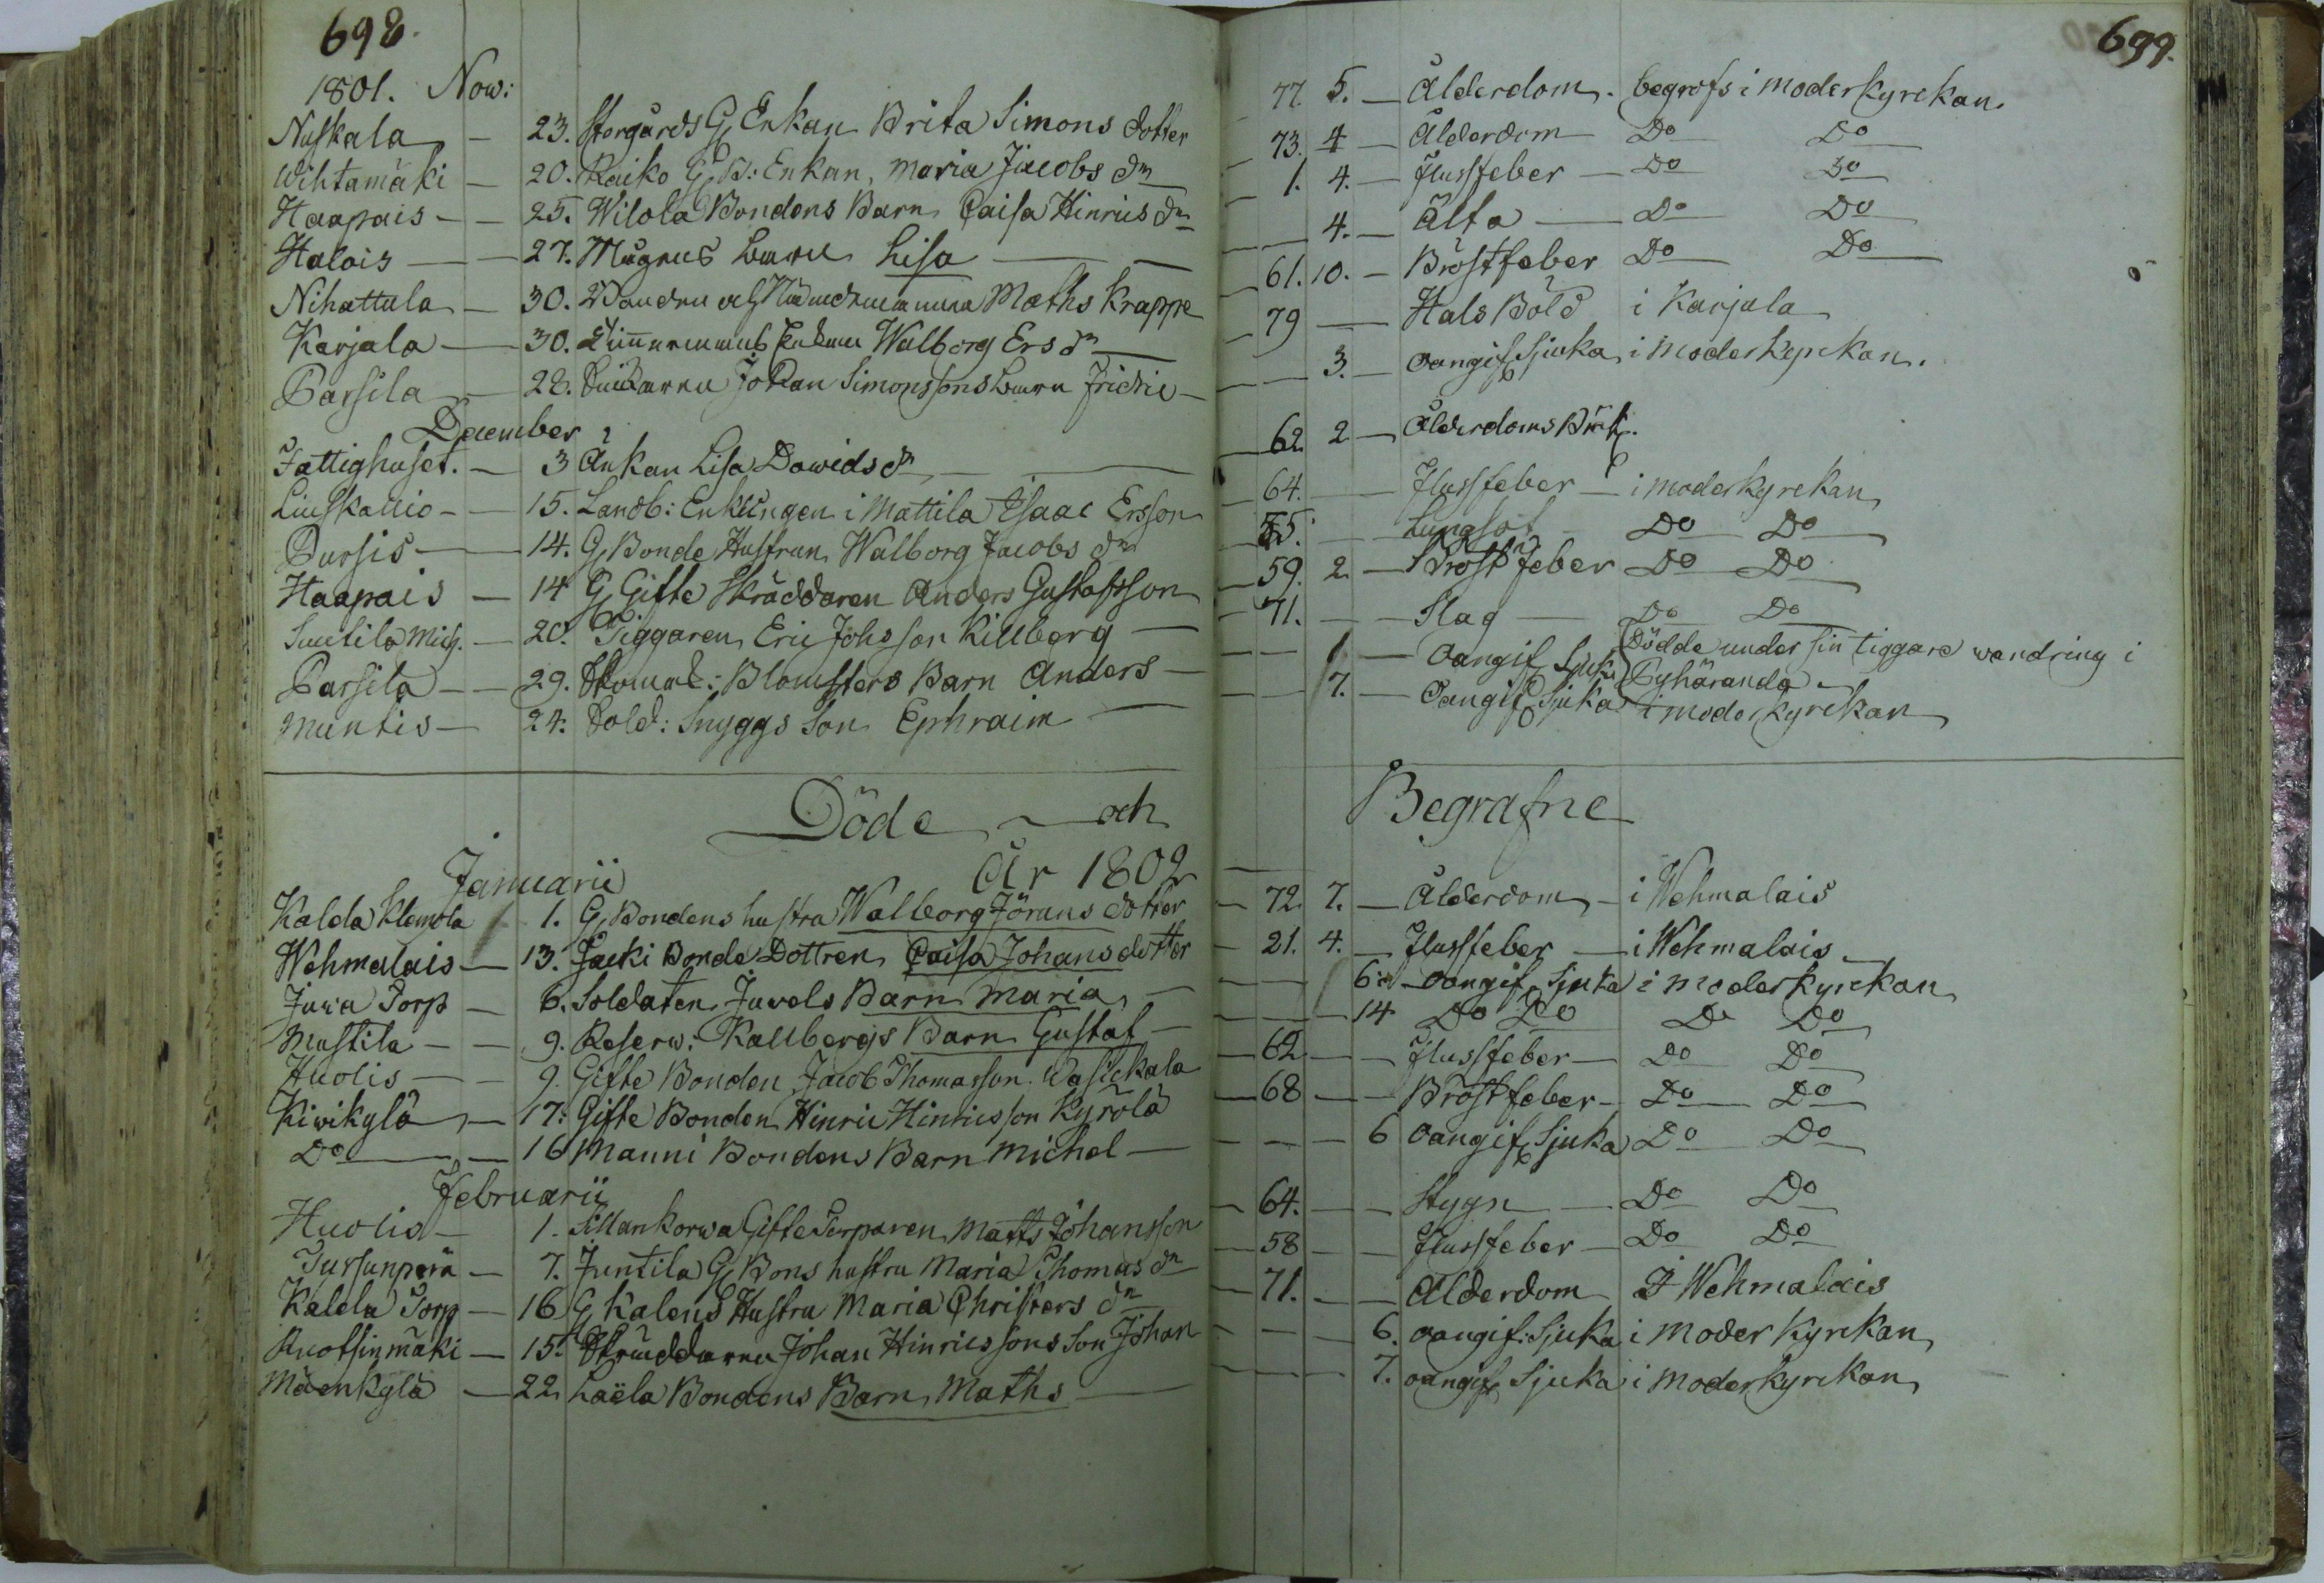 698.
1801. Now:
Nuskala - 23. Storgårds G. Enkan Brita Simons dotter
Wihtamäki - 20. Raiko G. B: Enkan, Maria Jacobs dr
Haapais - 25. Wilola Bondens Barn Caisa Hinrics dr
Halois - 27. Magnus barn Lisa
Nihattula - 30. Bonden och Nämndemannen Maths Krappe
Karjala - 30. Timmermans Enkan Walborg Ers dr
Parsila - 28. Johan Simonssons barn Fridric
December
Fattighuset. - 3 Änkan Lisa Dawids dr
Liuskallio - 15. Landb: Enklingen i Mattila Isaac Ersson
Pursis - 14. G. Bonde Hustrun Walborg Jacobs dr
Haapais - 14 G Gifte Skräddaren Anders Gustafsson
Suutila Mich. - 20. Tiggaren Eric Johs son Killberg
Parsila - 29. Skomak: Blomsters Barn Anders
Muntis - 24. Sold: Snyggs Son Ephraim
Döde och
År 1802
Januarii
Kalela Klemola 1. G. Bondens hustru Walborg Jörans dotter
Wehmalais - 13. Jacki Bonde Dottren Caisa Johans dotter
Juva Torp - 6. Soldaten Juvels Barn Maria
Mustila - 9. Reserv: Kallbergs Barn Gustaf
Huolis - 9. Gifte Bonden Jacob Thomasson Wasickala
Kiwikylä - 17. Gifte Bonden Hinric Hinricsson Kyrölä
Do - 16 Manni Bondens Barn Michel
Februarii
Huolis - 1. Sillankorwa Gifte Torparen Matts Johansson
Tursunperä - 7. Juntila G. Bons hustru Maria Thomas dr
Kalela Torp - 16 G Kalens Hustru Maria Christers dr
Ruotsinmäki - 15. Skräddaren Johan Hinricssons Son Johan
Mäenkylä - 22 Laëla Bondens Barn Maths
699.
77. 5. - Ålderdom. begrofs i moderkyrckan.
73. 4 - Ålderdom Do Do
1. 4. - Flussfeber - Do Do
4. - Älta - Do Do
61. 10. - Bröstfeber Do Do
79 - Hals Böld i Karjala
3. - oangif. Sjuka i moderkyrckan.
62 2 - Ålderdoms Bräck.
64. - Flussfeber - i moderkyrckan
55. Lungsot Do Do
59. 2 - Bröst feber Do Do
71. - Slag - Do Do
1 - Oangif. Sjuka Dödde under sin tiggare wandring i
Pyhäranda
7. - Oangif. Sjuka i moderkyrckan
Begrafne
72. 7. - Ålderdom - i Wehmalais
21. 4. - Flussfeber - i Wehmalais
6. - oangif. Sjuka i moderkyrckan
14 Do Do Do Do
62 - Flussfeber - Do Do
68 - Bröstfeber - Do Do
6 oangif. Sjuka Do Do
64. - Stygn - Do Do
58 - Flussfeber - Do Do
71. - Ålderdom I Wehmalais
6. oangif: Sjuka i moder Kyrckan
7. oangif. Sjuka i moderkyrckan